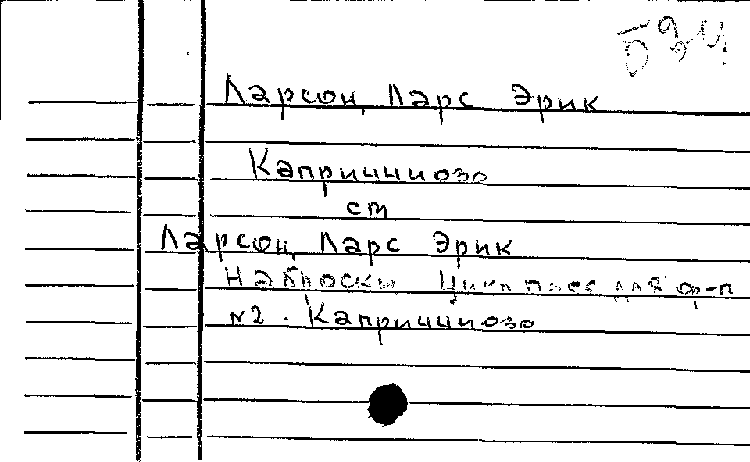 Ларсон, Ларс Эрик
Каприччиозо
ст
Ларсон, Ларс Эрик
Наброски Цикл пьес для ф-п
N2. Каприччиозо